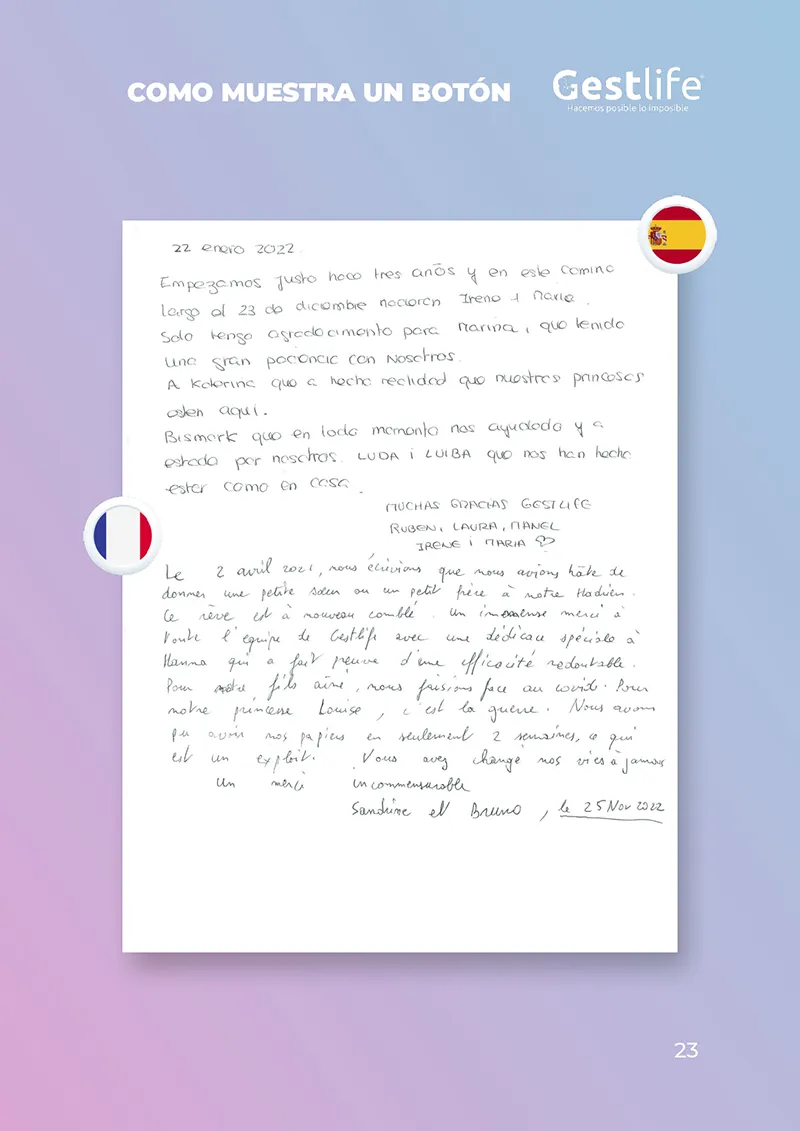 COMO MUESTRA UN BOTÓN
Gestlife
Hacemos posible lo imposible
22 enero 2022.
Empezamos justo hace tres años y en este camino
largo al 23 de diciembre nacieron Irene i Maria.
Solo tengo agradecimento para Marina, que tenido
una gran pacencia con nosotros.
A Katerina que a hecho realidad que nuestras princesas
esten aqui.
Bismark que en todo momento nos ayudado y a
estado por nosotros. LUDA i LUIBA que nos han hecho
estar como en casa.
MUCHAS GRACIAS GESTLIFE
RUBEN, LAURA, MANEL
IRENE i MARIA
Le 2 avril 2021, nous écrivions que nous avions hâte de
donner une petite sœur ou un petit frère à notre Hadrien.
Ce rêve est à nouveau comblé. Un immense merci à
toute l'équipe de Gestlife avec une dédicace spéciale à
Hanna qui a fait preuve d'une efficacité redoutable.
Pour notre fils aîné, nous faisions face au covid. Pour
notre princesse Louise, c'est la guerre. Nous avons
pu avoir nos papiers en seulement 2 semaines, ce qui
est un exploit. Vous avez changé nos vies à jamais
Un merci incommensurable
Sandrine et Bruno, le 25 Nov 2022
23